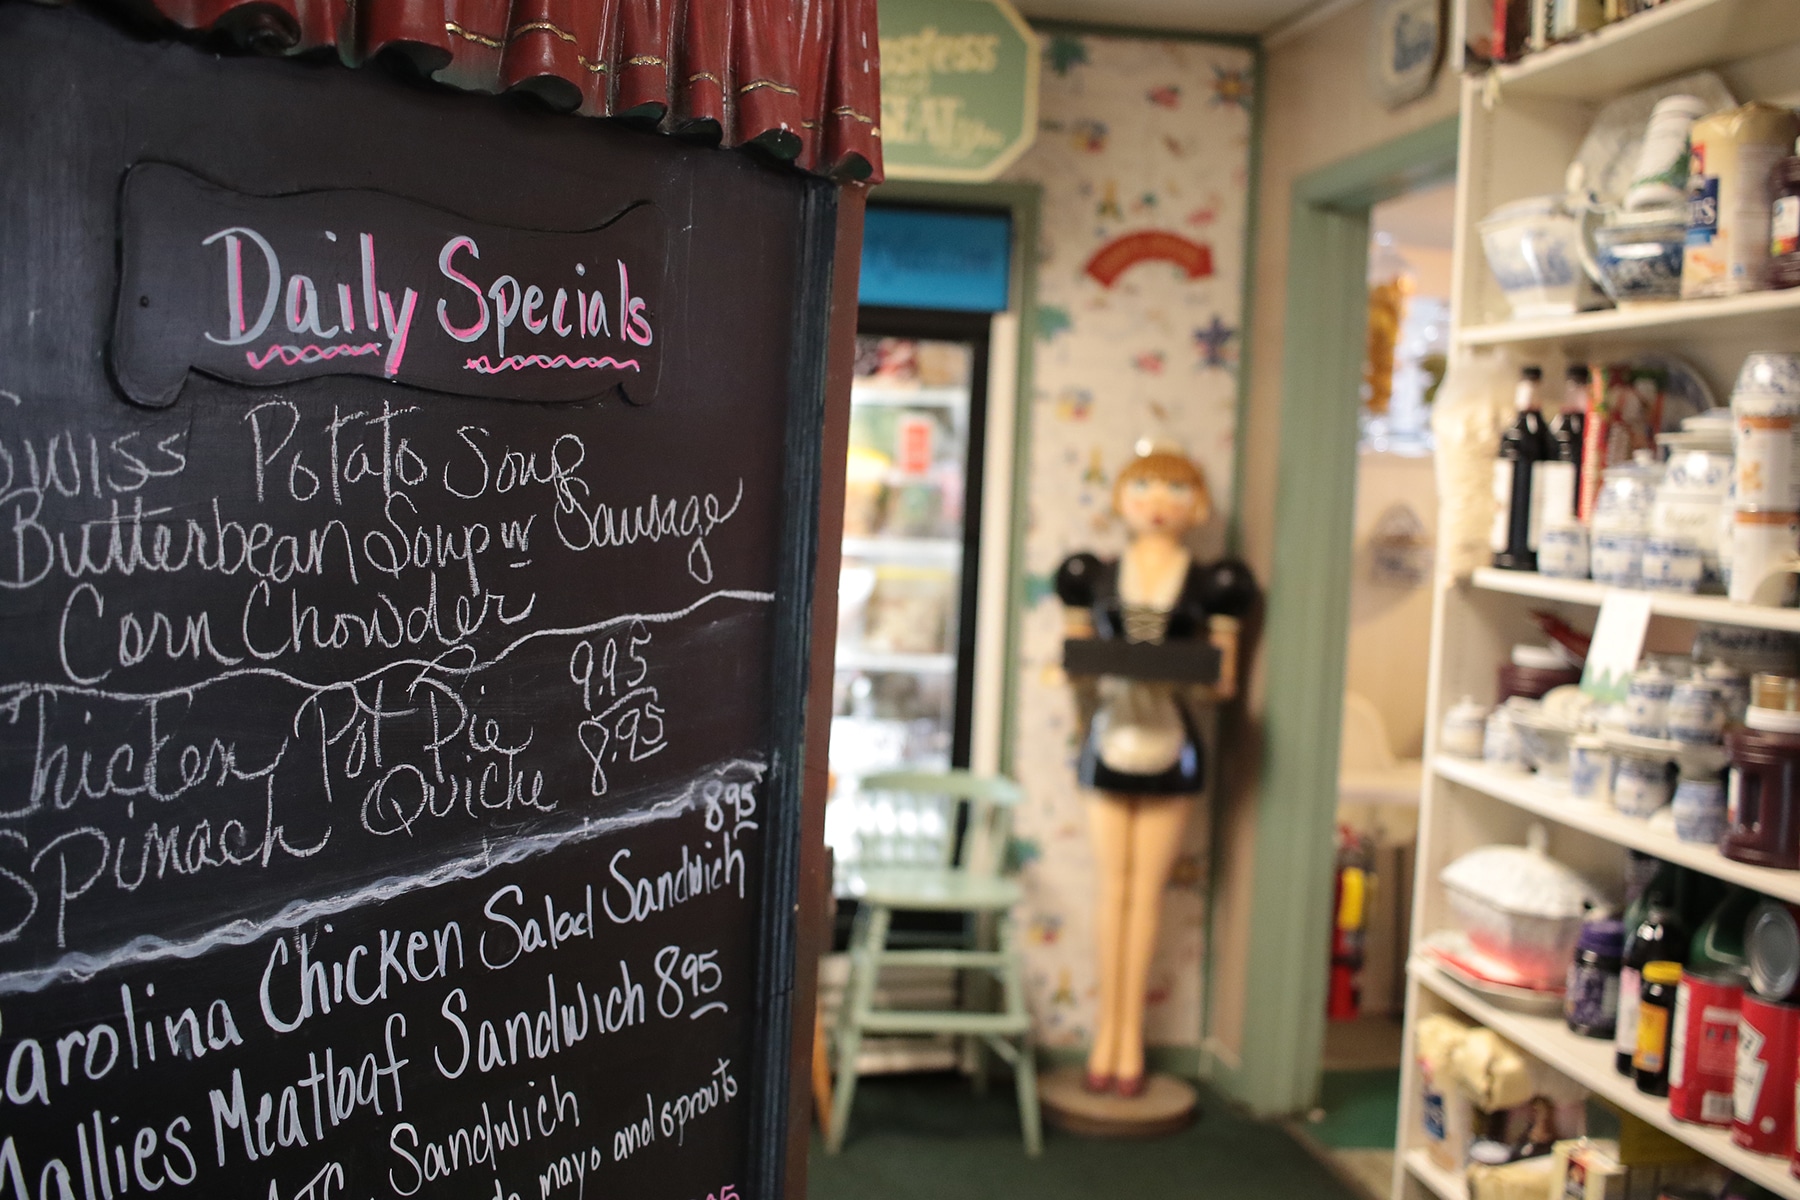 Daily Specials
Swiss Potato Soup
Butterbean Soup w Sausage
Corn Chowder
Chicken Pot Pie 9.95
Spinach Quiche 8.95
8.95
Carolina Chicken Salad Sandwich
Mallies Meatloaf Sandwich 8.95
Sandwich
mayo and sprouts
SEAT